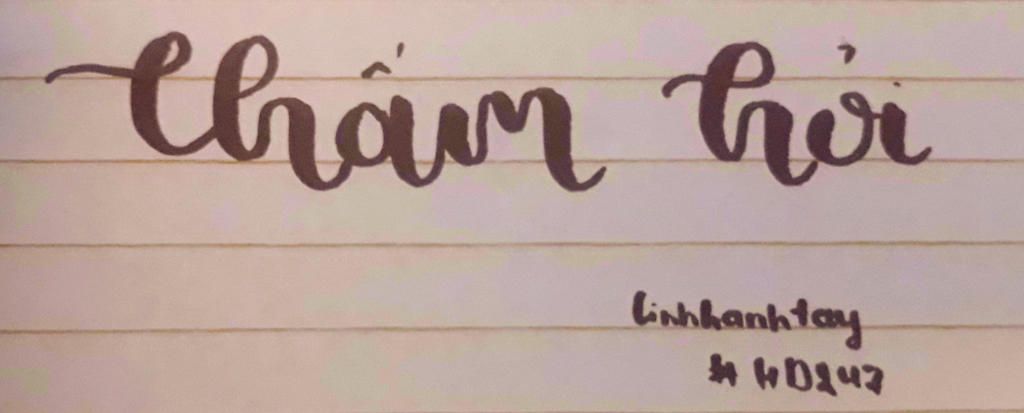 Thấm hỏi
linhhanhtay
# HD247